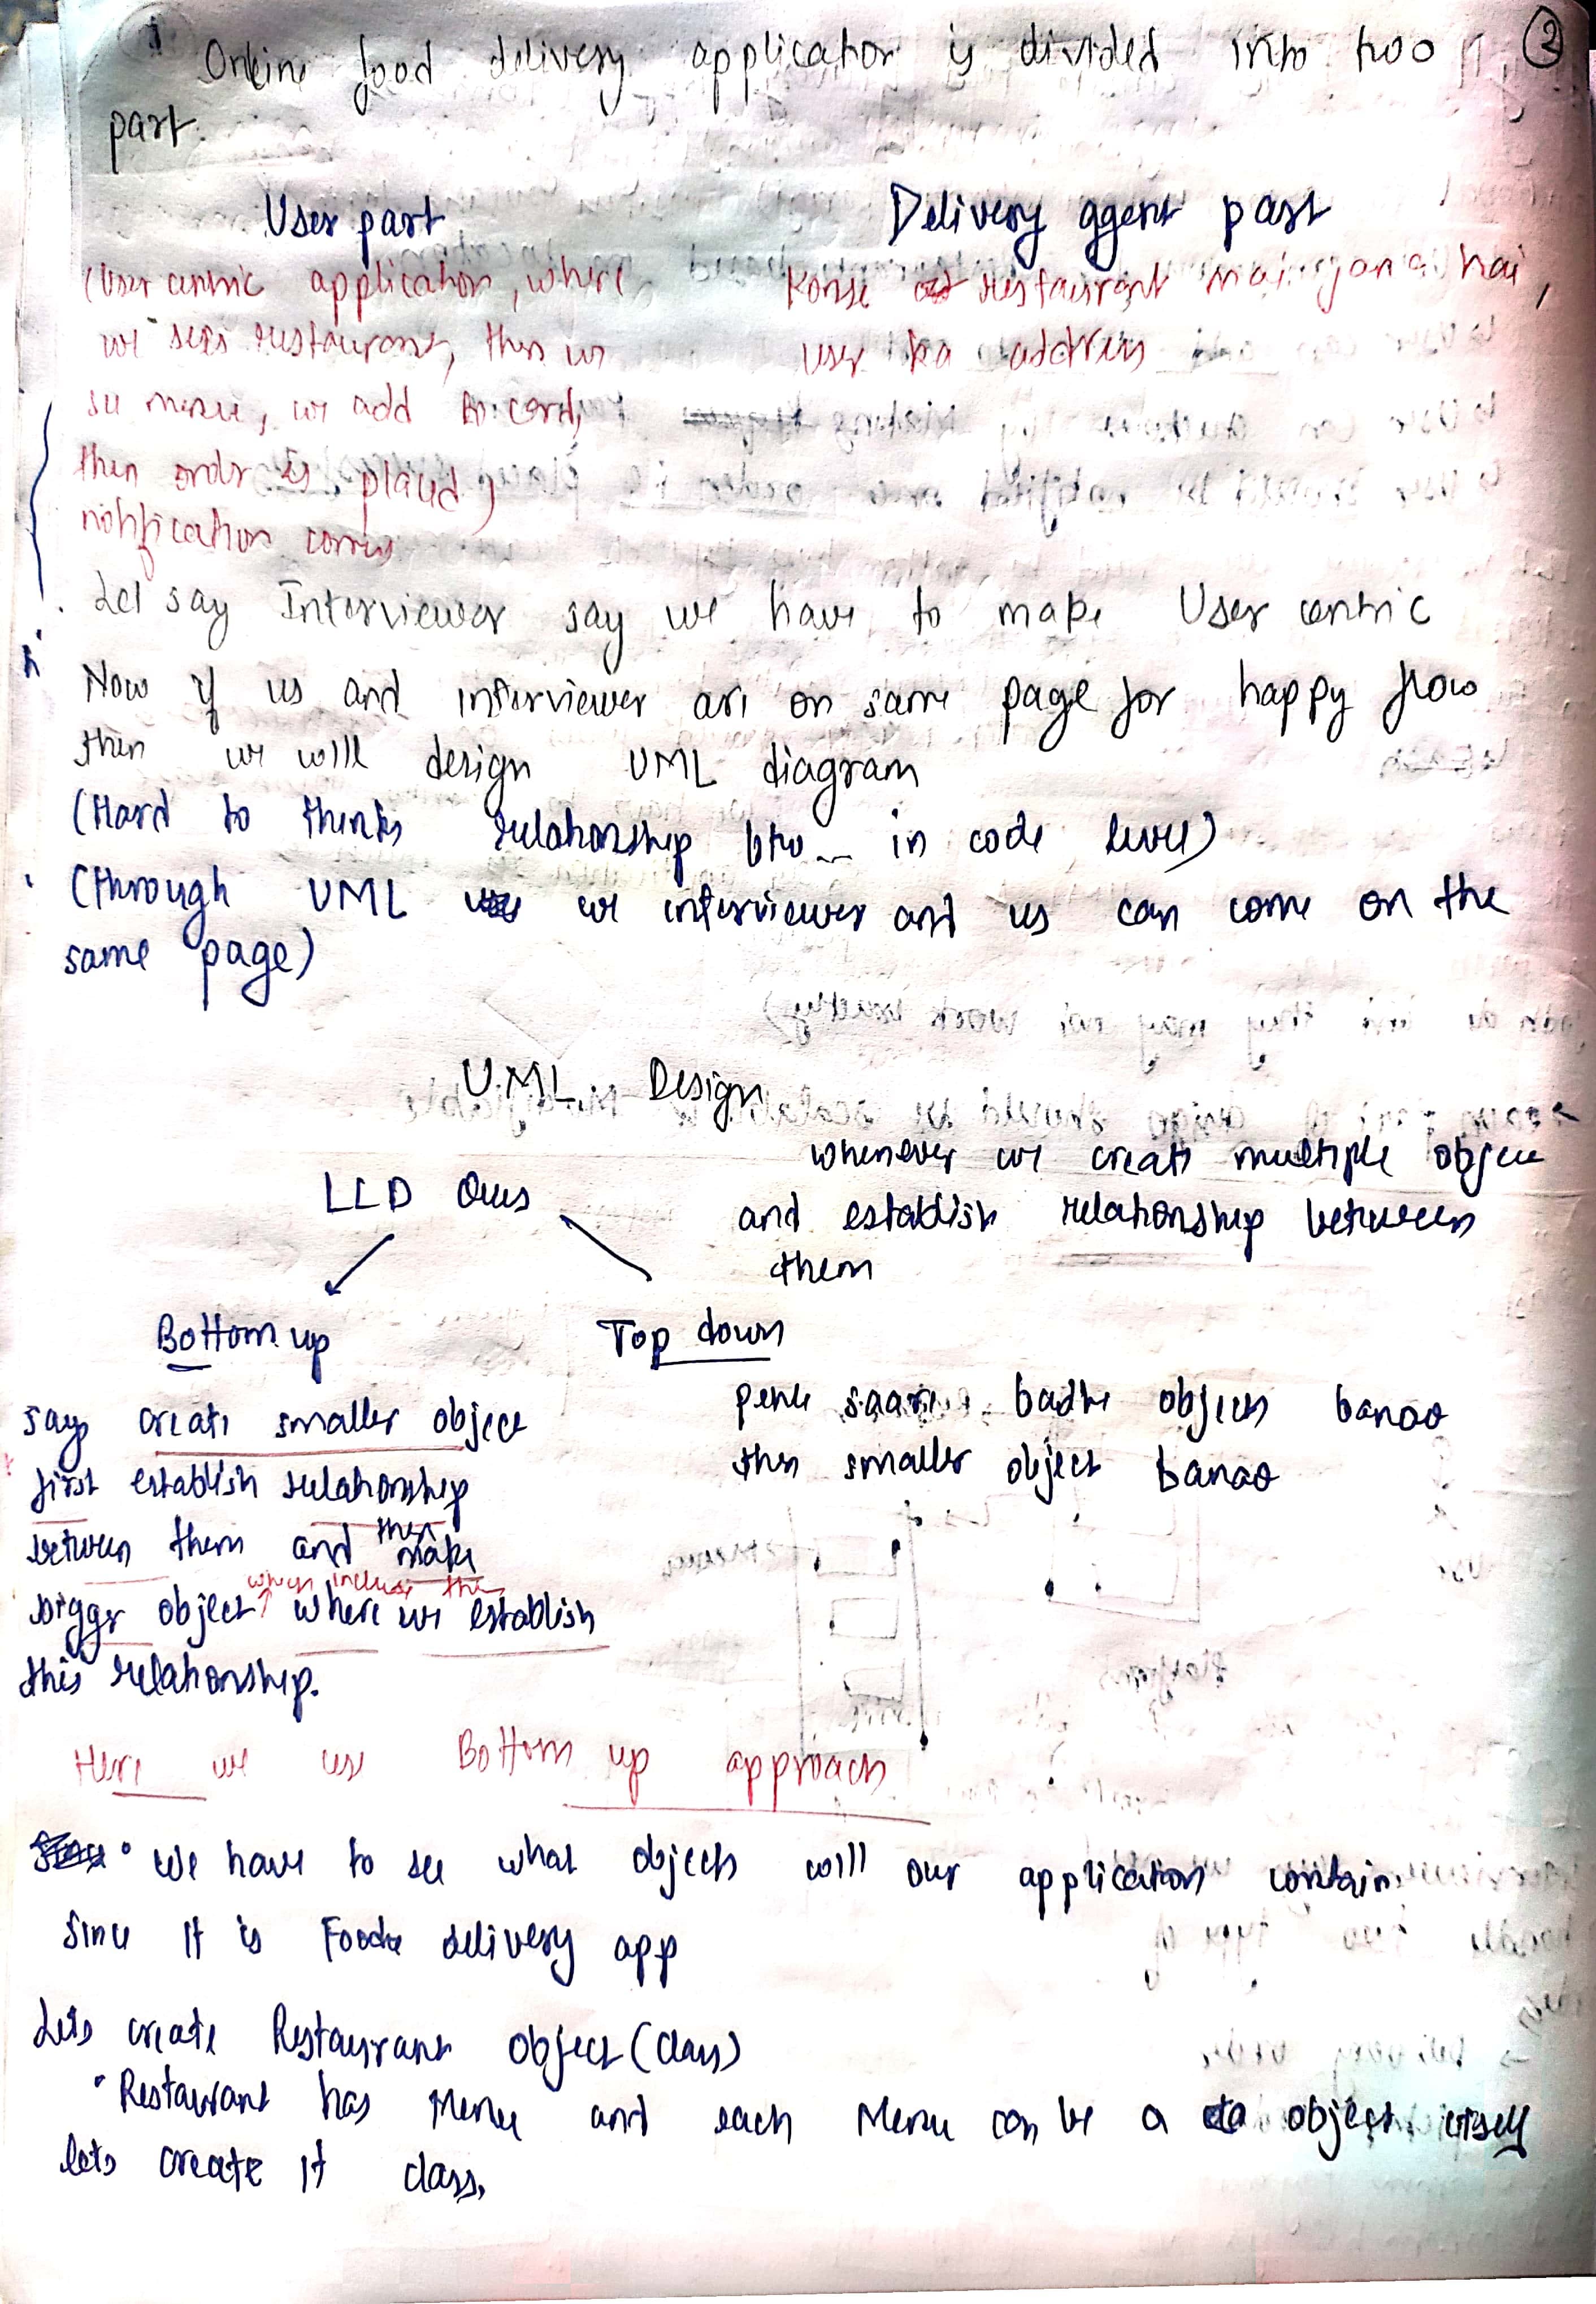 2
Online food delivery application is divided into two
part.
User part
(User centric application, where
we sees restaurants, then we
see menu, we add to card,
then order is placed,
notification comes
Delivery agent part
Konse restaurant mai jana hai,
user ka address
Let say Interviewer say we have to make User centric
Now if us and interviewer are on same page for happy flow
then we will design UML diagram
(Hard to thinks relationship btw in code level)
(through UML we interviewer and us can come on the
same page)
UML Design
LLD Ques
whenever we create multiple object
and establish relationship between
them
Bottom up
says create smaller object
first establish relationship
between them and then make
bigger object which includes this where we establish
this relationship.
Top down
pehle saare badhe objects banao
then smaller object banao
Here we use Bottom up approach
• We have to see what objects will our application contain
Since it is Food delivery app
Lets create Restaurant object (class)
• Restaurant has Menu and each Menu can be a object itself
lets create it class.